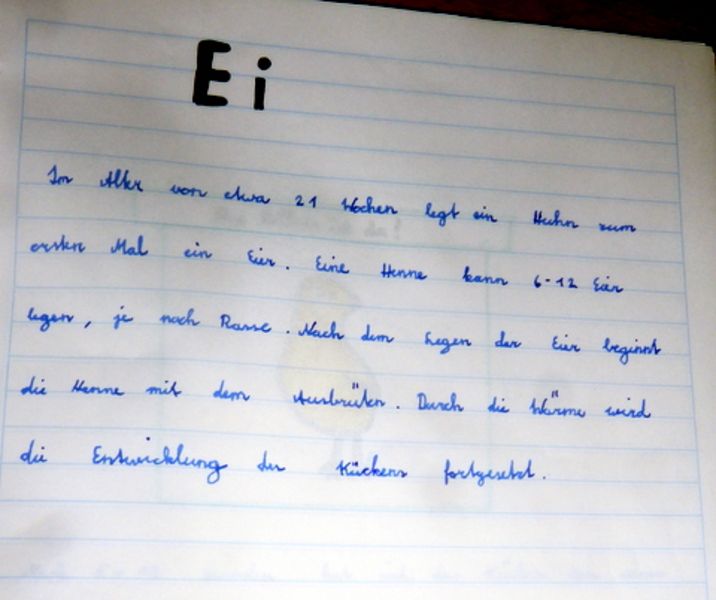 Ei
Im Alter von etwa 21 Wochen legt ein Huhn zum
ersten Mal ein Eier. Eine Henne kann 6-12 Eier
legen, je nach Rasse. Nach dem Legen der Eier beginnt
die Henne mit dem Ausbrüten. Durch die Wärme wird
die Entwicklung der Kückens fortgesetzt.